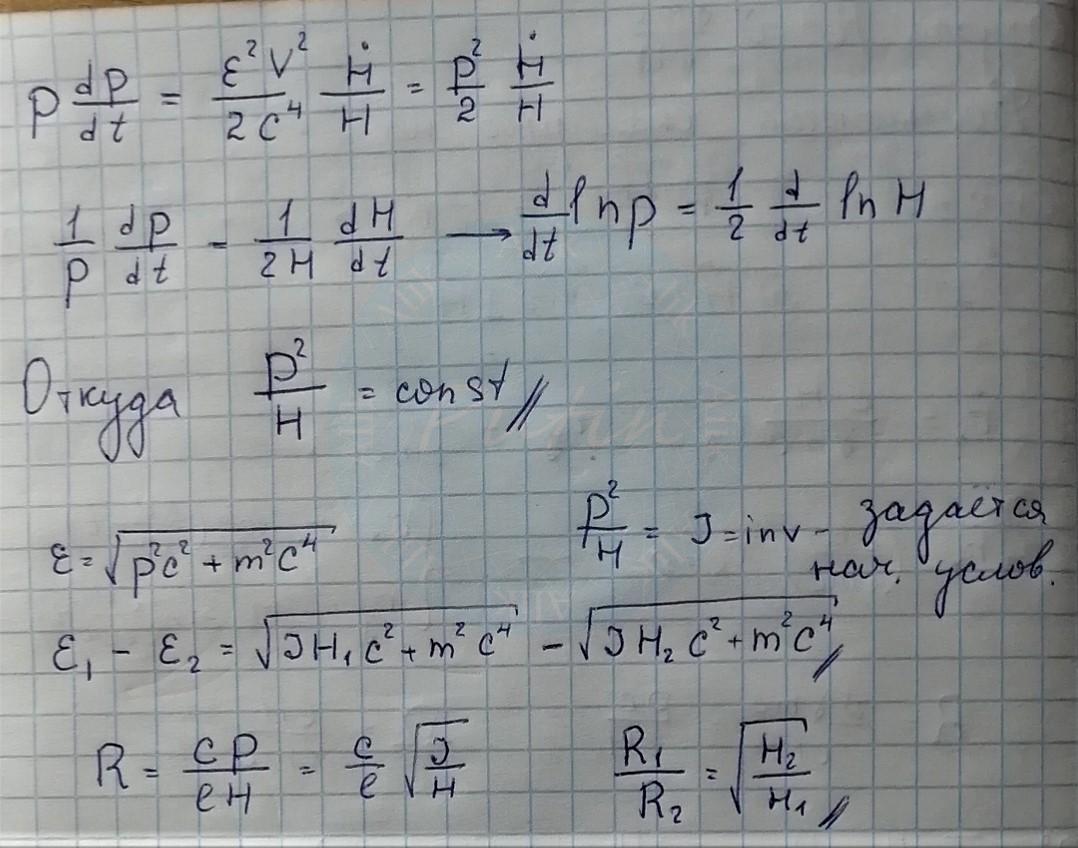 p dp/dt = ε²V²/2c⁴ Ḣ/H = p²/2 Ḣ/H
1/p dp/dt = 1/2H dH/dt → d/dt ln p = 1/2 d/dt ln H
Откуда p²/H = const //
ε = √(p²c² + m²c⁴) p²/H = J = inv – задаётся
нач. услов.
ε₁ – ε₂ = √(JH₁c² + m²c⁴) – √(JH₂c² + m²c⁴) //
R = cp/eH = c/e √(J/H) R₁/R₂ = √(H₂/H₁) //